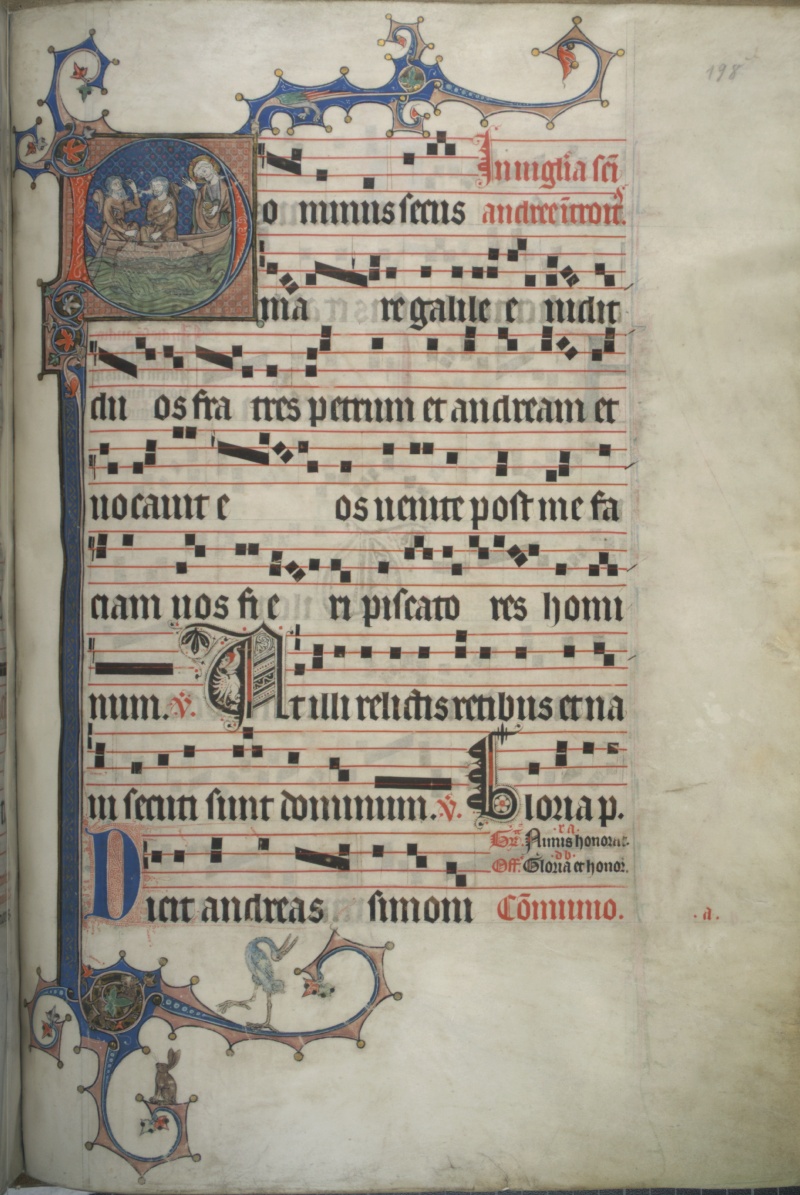 198
In uigilia sci
Do minus secus andree introit.
ma re galilee e uidit
du os fra tres petrum et andream et
uocauit e os uenite post me fa
ciam uos fi e ri piscato res homi
num. V. At illi relictis retibus et na
ui secuti sunt dominum. V. Gloria p.
Gr. Nimis honorat.
Off. Gloria et honor.
Dicit andreas simoni Comunio.
.a.